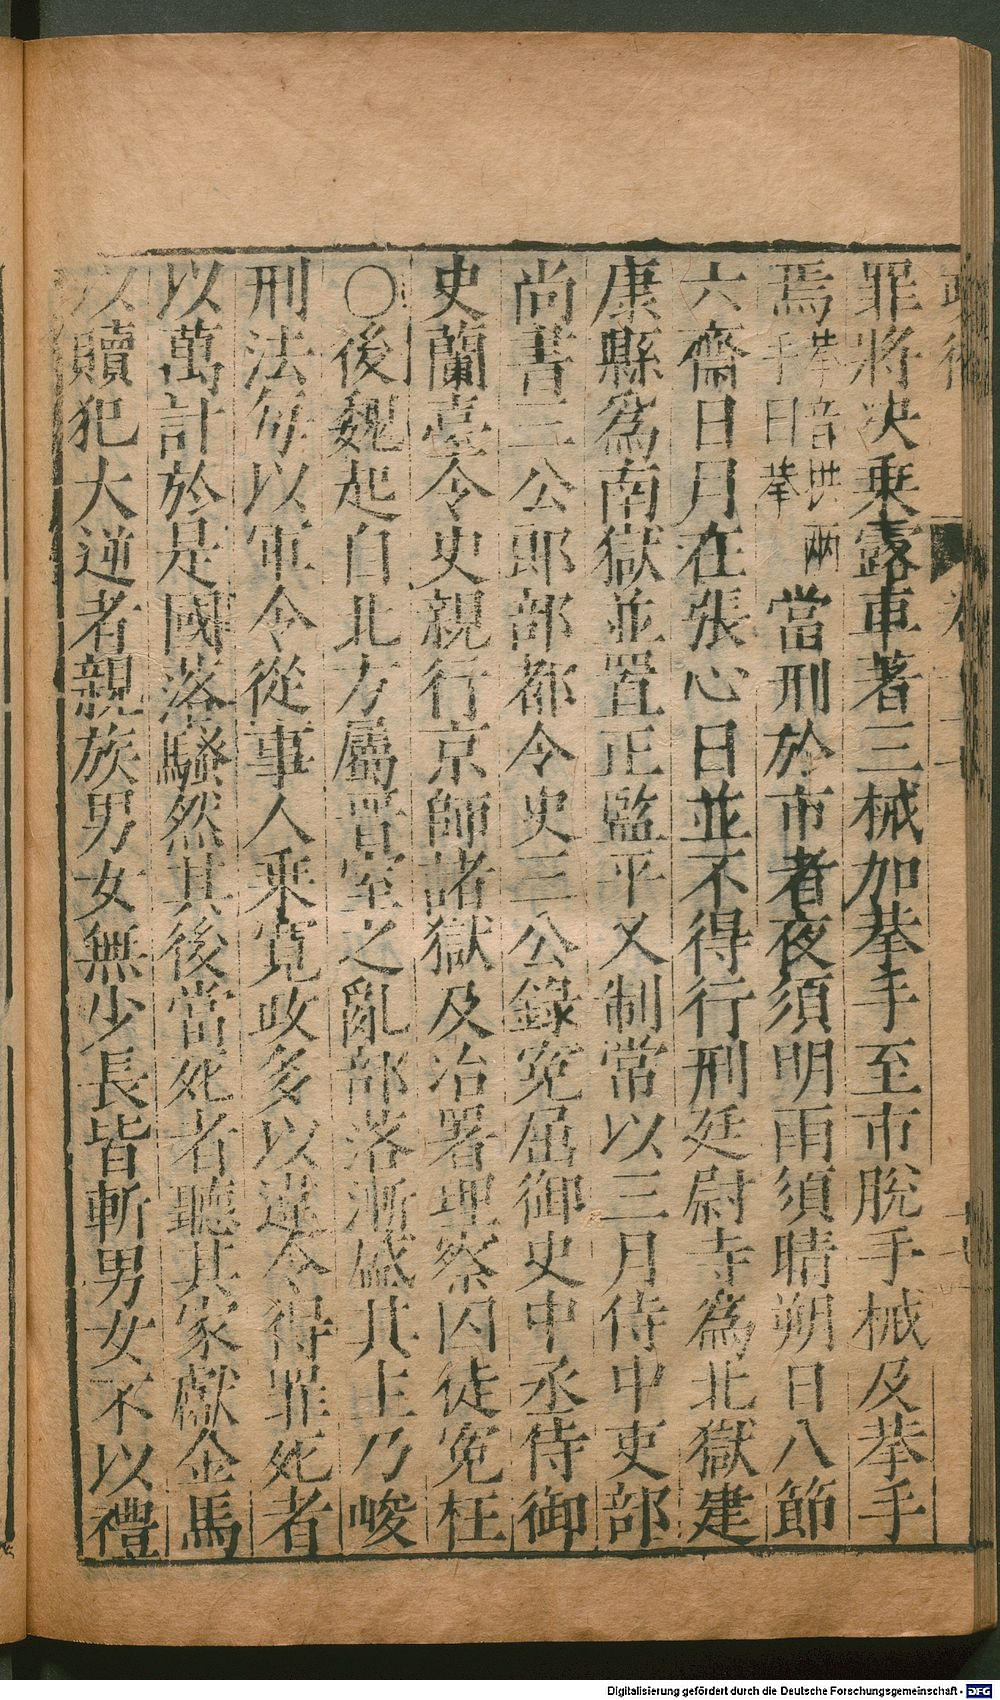 罪將决乗露車著三械加拲手至市脫手械及拲手
焉拲音拱兩手曰拲當刑於市者夜須明雨須晴朔日八節
六齋日月在張心日並不得行刑廷尉寺爲北獄建
康縣爲南獄並置正監平又制常以三月侍中吏部
尚書三公郎部都令史三公錄寃屈御史中丞侍御
史蘭臺令史親行京師諸獄及冶署理察囚徒寃枉
○後魏起自北方屬晋室之亂部落漸盛其主乃峻
刑法每以軍令從事人乘寬政多以違令得罪死者
以萬計於是國落騷然其後當死者聽其家獻金馬
以贖犯大逆者親族男女無少長皆斬男女不以禮
Digitalisierung gefördert durch die Deutsche Forschungsgemeinschaft - DFG